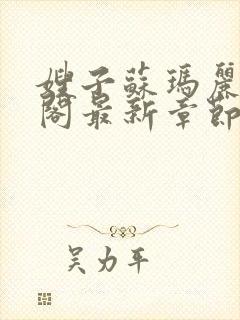 嫂子蘇瑪麗
閣最新章節
吴力平